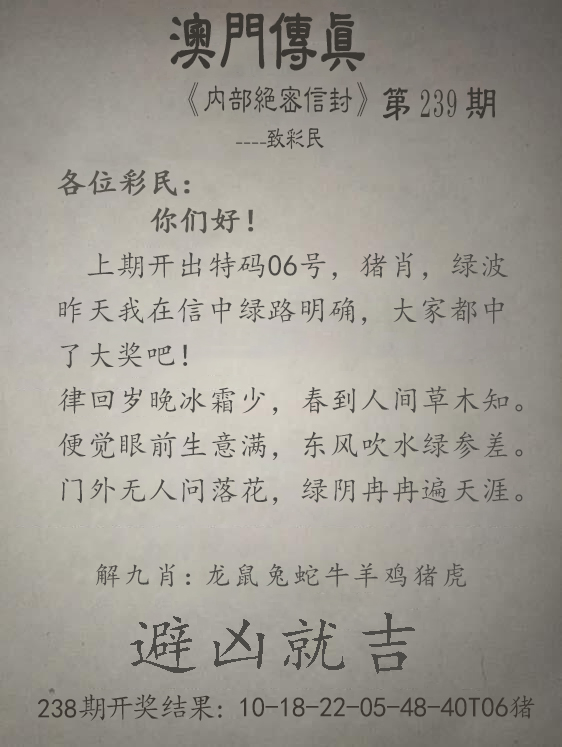 澳門傳真
《内部絕密信封》第239期
----致彩民
各位彩民:
你们好!
上期开出特码06号，猪肖，绿波
昨天我在信中绿路明确，大家都中
了大奖吧!
律回岁晚冰霜少，春到人间草木知。
便觉眼前生意满，东风吹水绿参差。
门外无人问落花，绿阴冉冉遍天涯。
解九肖:龙鼠兔蛇牛羊鸡猪虎
避凶就吉
238期开奖结果: 10-18-22-05-48-40T06猪